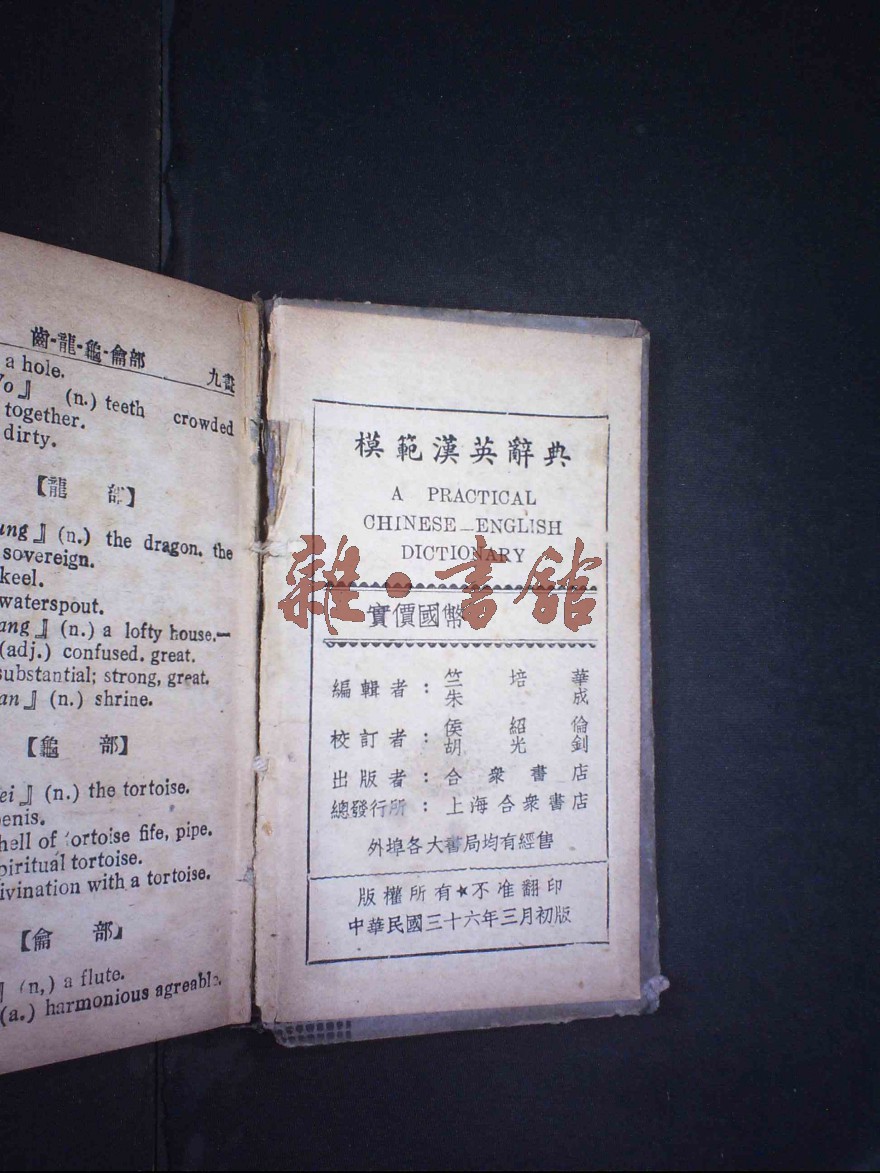 齒-龍-龜-龠部
九畫
a hole.
(n.) teeth crowded
together.
dirty.
【龍 部】
ung』 (n.) the dragon. the
sovereign.
keel.
waterspout.
ang』 (n.) a lofty house.—
(adj.) confused. great.
substantial; strong, great.
an』 (n.) shrine.
【龜 部】
ei』 (n.) the tortoise.
penis.
hell of tortoise fife, pipe.
piritual tortoise.
ivination with a tortoise.
【龠 部】
』 (n,) a flute.
(a.) harmonious agreable.
模範漢英辭典
A PRACTICAL
CHINESE—ENGLISH
DICTIONARY
雜·書館
實價國幣
編輯者：竺培華
朱成
校訂者：侯紹倫
胡光釗
出版者：合衆書店
總發行所：上海合衆書店
外埠各大書局均有經售
版權所有★不准翻印
中華民國三十六年三月初版